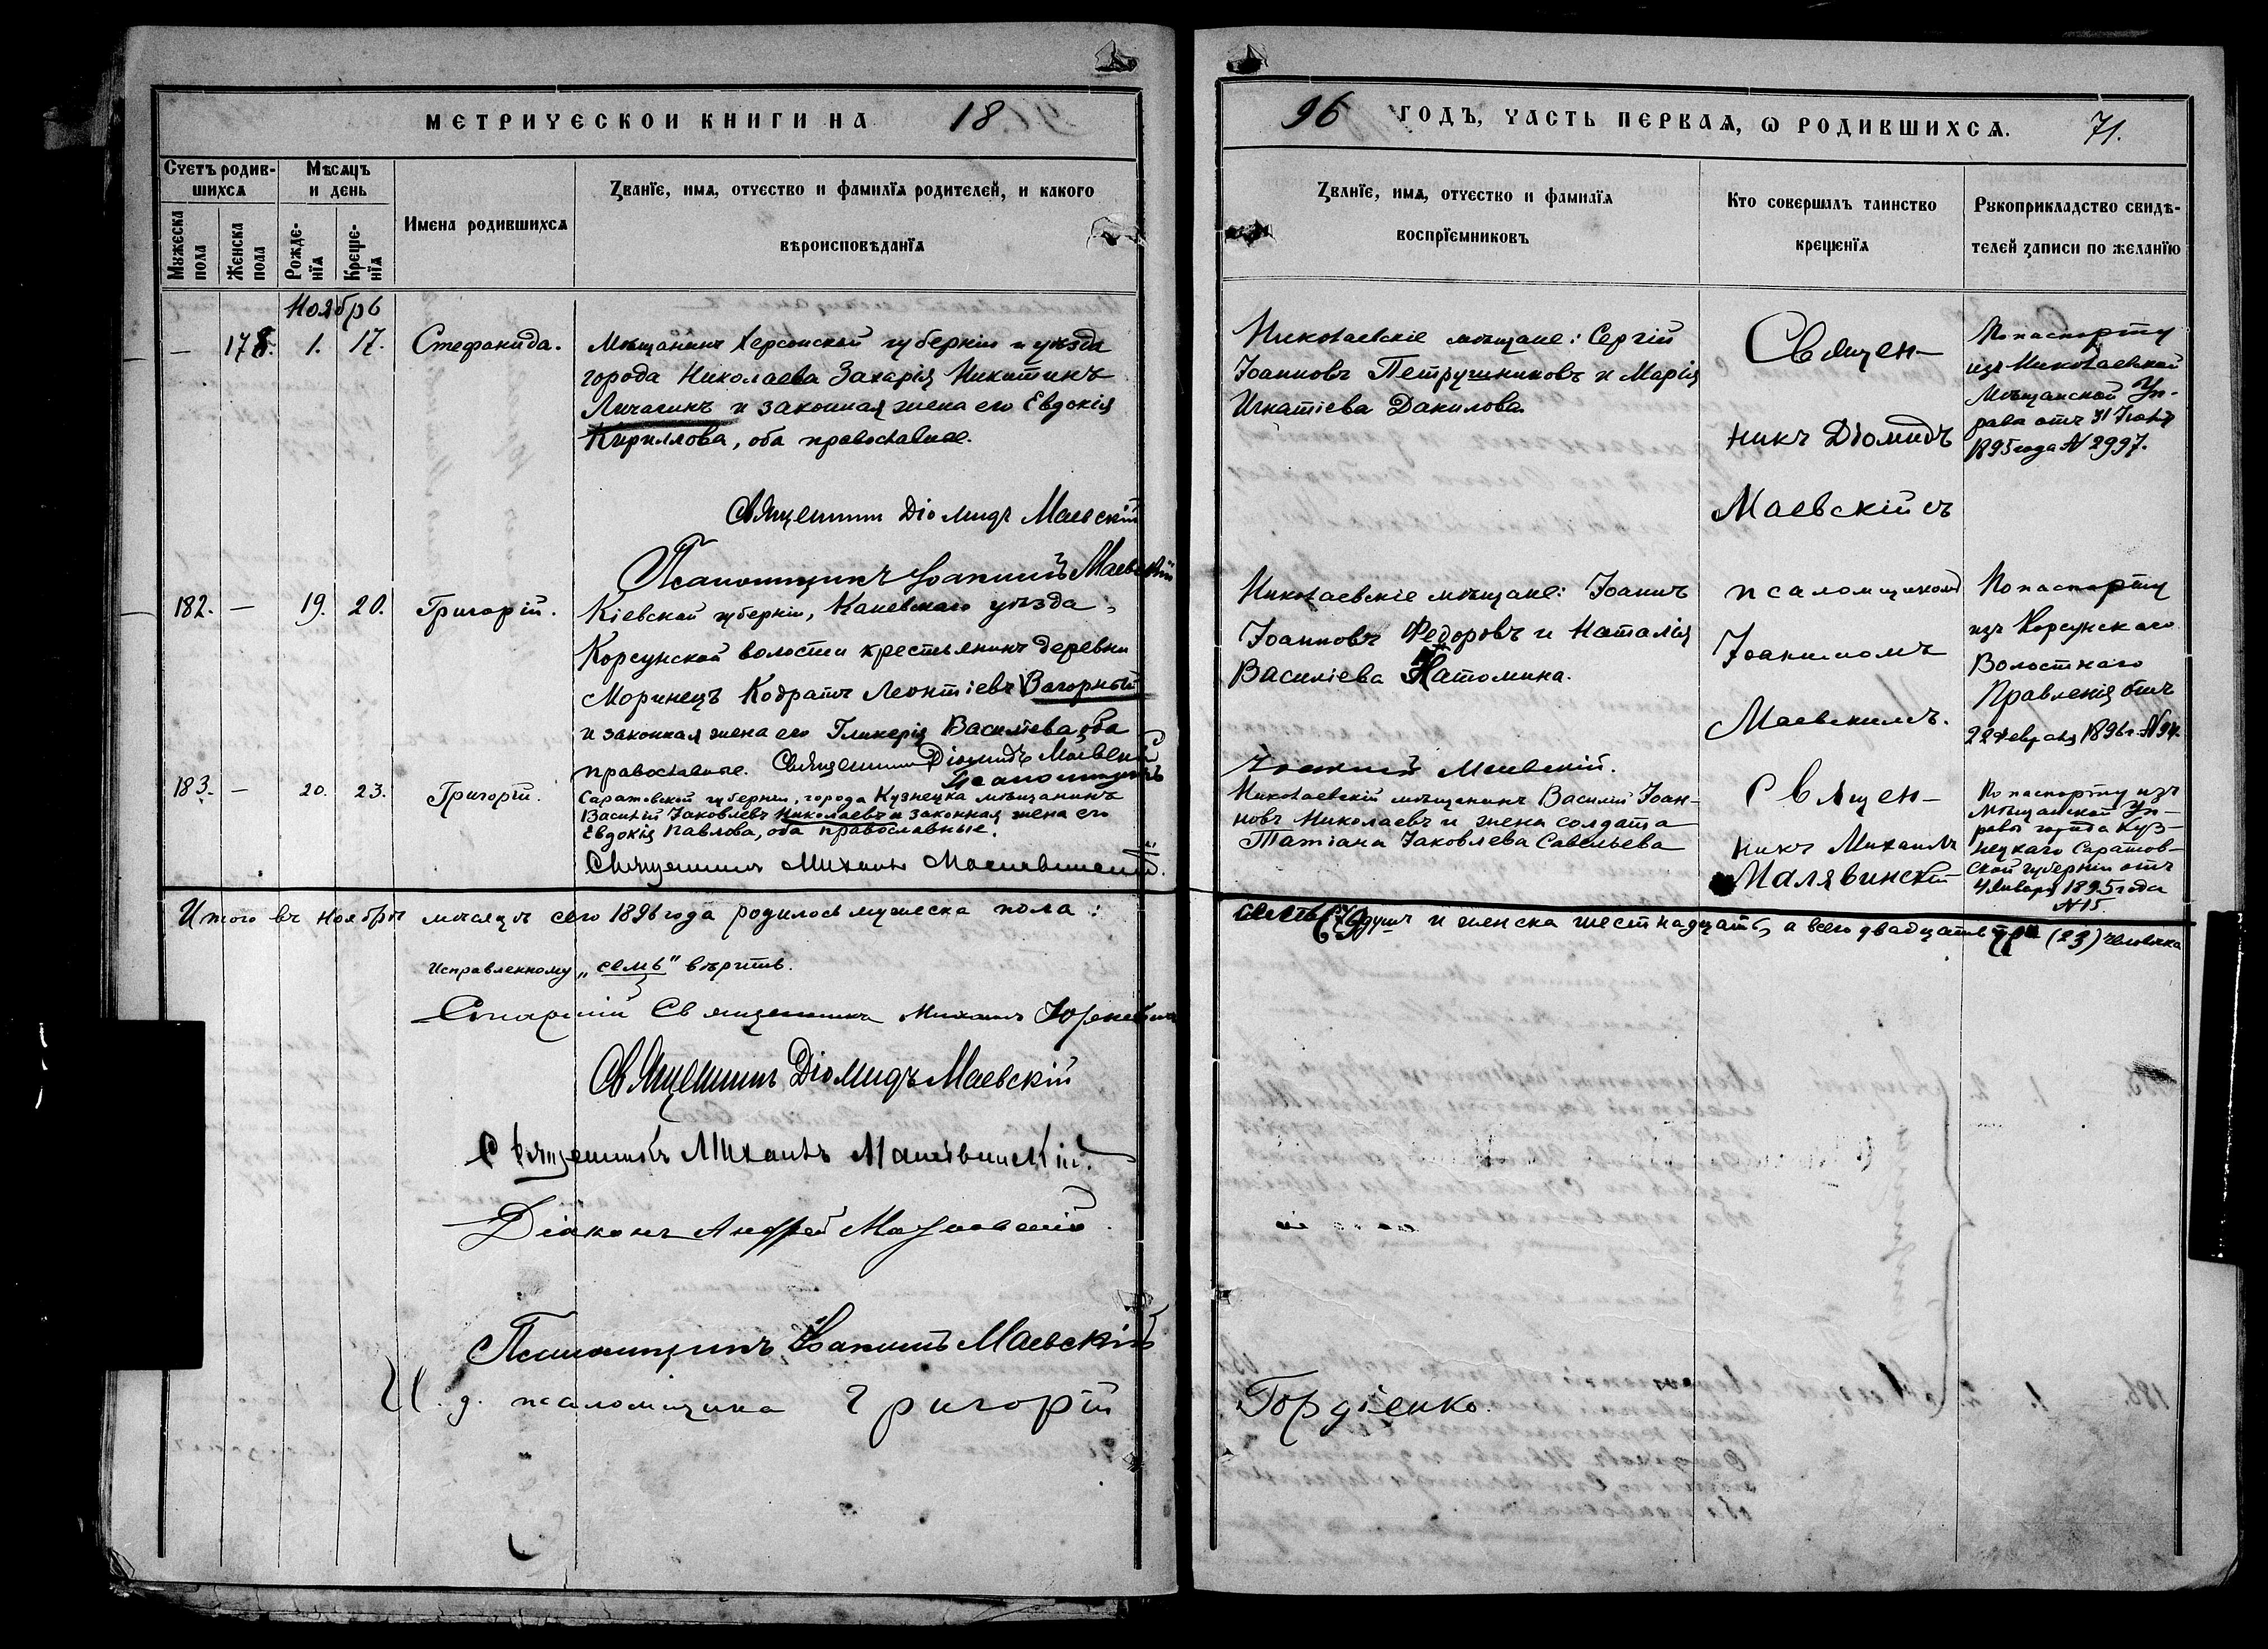 МЕТРИЧЕСКОЙ КНИГИ НА 18
96 ГОДЪ, ЧАСТЬ ПЕРВАЯ, Ѡ РОДИВШИХСЯ. 71.
Счетъ родив-
шихся
Мужеска пола
Женска пола
Мѣсяцъ
и день
Рожде-
нїя
Креще-
нїя
Имена родившихся
Званїе, имя, отчество и фамилїя родителей, и какого
вѣроисповѣданїя
Званїе, имя, отчество и фамилїя
воспрїемниковъ
Кто совершалъ таинство
крещенїя
Рукоприкладство свидѣ-
телей записи по желанїю
Ноябрь
— 178. 1. 17. Стефанида.
Мѣщанинъ Херсонской губерніи и уѣзда
города Николаева Захарія Никитинъ
Личагинъ и законная жена его Евдокія
Кириллова, оба православные.
Священникъ Діомидъ Маевскій
Псаломщикъ Іоакимъ Маевскій
Николаевскіе мѣщане: Сергій
Іоанновъ Петрушниковъ и Марія
Игнатіева Данилова.
Священ-
никъ Діомидъ
Маевскій съ
По паспорту
изъ Николаевской
Мѣщанской Уп-
рава отъ 31 Іюля
1895 года № 2997.
182. — 19. 20. Григорій.
Кіевской губерніи, Каневскаго уѣзда,
Корсунской волости крестьянинъ деревни
Моринецъ Кодратъ Леонтіевъ Вагорный
и законная жена его Гликерія Василіева, оба
православные. Священникъ Діомидъ Маевскій
Псаломщикъ
Николаевскіе мѣщане: Іоаннъ
Іоанновъ Федоровъ и Наталія
Василіева Натомина.
Іоакимъ Маевскій.
псаломщикомъ
Іоакимомъ
Маевскимъ.
По паспорту
изъ Корсунскаго
Волостнаго
Правленія отъ
22 Февраля 1896 г. № 94.
183. — 20. 23. Григорій.
Саратовской губерніи, города Кузнецка мѣщанинъ
Василій Іаковлевъ Николаевъ и законная жена его
Евдокія Павлова, оба православные.
Священникъ Михаилъ Малявинскій.
Николаевскій мѣщанинъ Василій Іоан-
новъ Николаевъ и жена солдата
Татіана Іаковлева Савельева
Священ-
никъ Михаилъ
Малявинскій
По паспорту изъ
Мѣщанской Уп-
равы города Куз-
нецкаго Саратов-
ской губерніи отъ
4 Января 1895 года
№ 15.
Итого въ ноябрѣ мѣсяцѣ сего 1896 года родилось мужеска пола:
семь (7) душъ и женска шестнадцать, а всего двадцать три (23) человѣка
Исправленному „семь" вѣрить.
Старшій Священникъ Михаилъ
Священникъ Діомидъ Маевскій
Священникъ Михаилъ Малявинскій.
Діаконъ Андрей
Псаломщикъ Іоакимъ Маевскій
И. д. псаломщика Григорій Гордіенко.